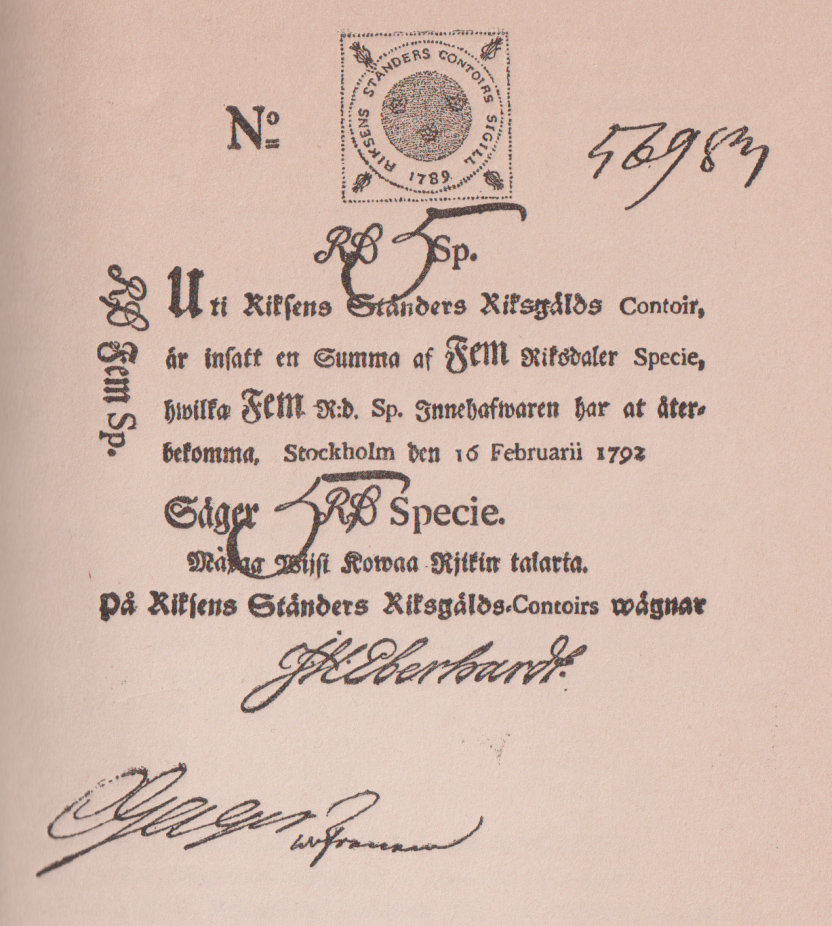 RIKSENS STÄNDERS CONTOIRS SIGILL
1789
Nº
56983
RD 5 Sp.
RD Fem Sp.
Uti Riksens Ständers Riksgälds Contoir,
är insatt en Summa af Fem Riksdaler Specie,
hwilka Fem R:d. Sp. Innehafwaren har at åter-
bekomma, Stockholm den 16 Februarii 1792
Säger 5 RD Specie.
Rjikin talaria.
På Riksens Ständers Riksgälds-Contoirs wägnar
JHEberhardt.